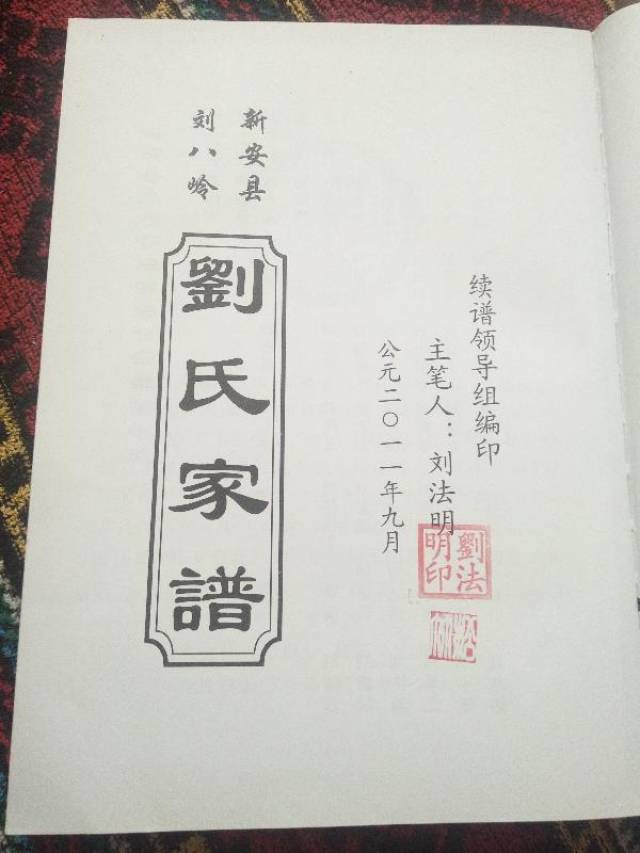 新安县
刘八岭
劉氏家譜
续谱领导组编印
主笔人：刘法明
公元二〇一一年九月
劉法
明印